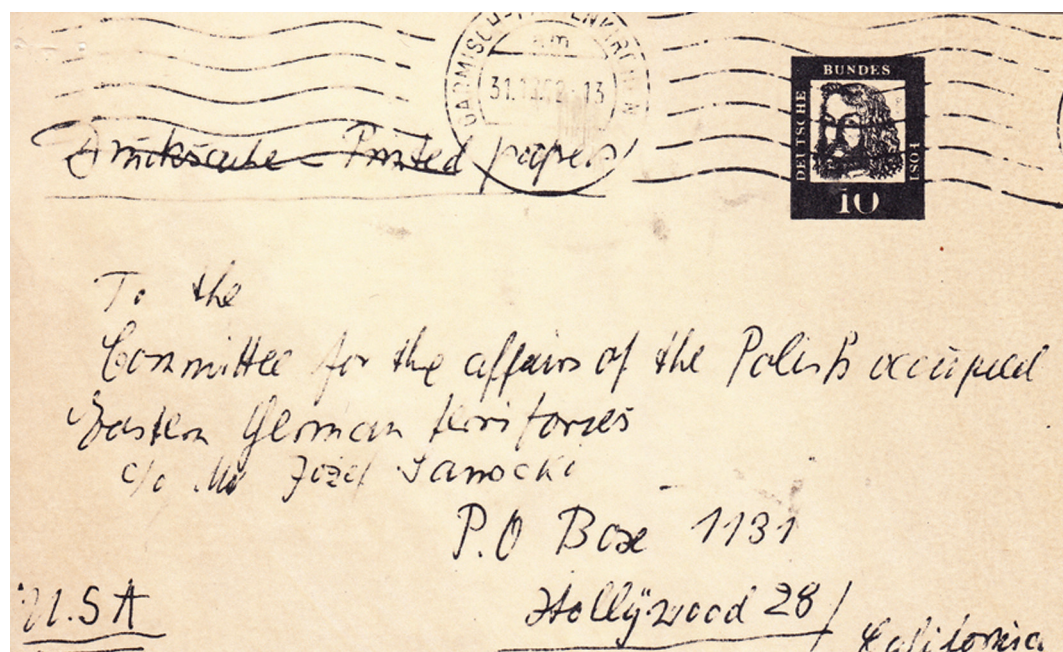 GARMISCH-PARTENKIRCHEN
31.12.62-13
BUNDES
DEUTSCHE
POST
10
Drucksache - Printed papers
To the
Committee for the affairs of the Polish occupied
Eastern German territories
c/o Mr Józef Sanocki
P.O Box 1131
Hollÿwood 28/
California
U.S A